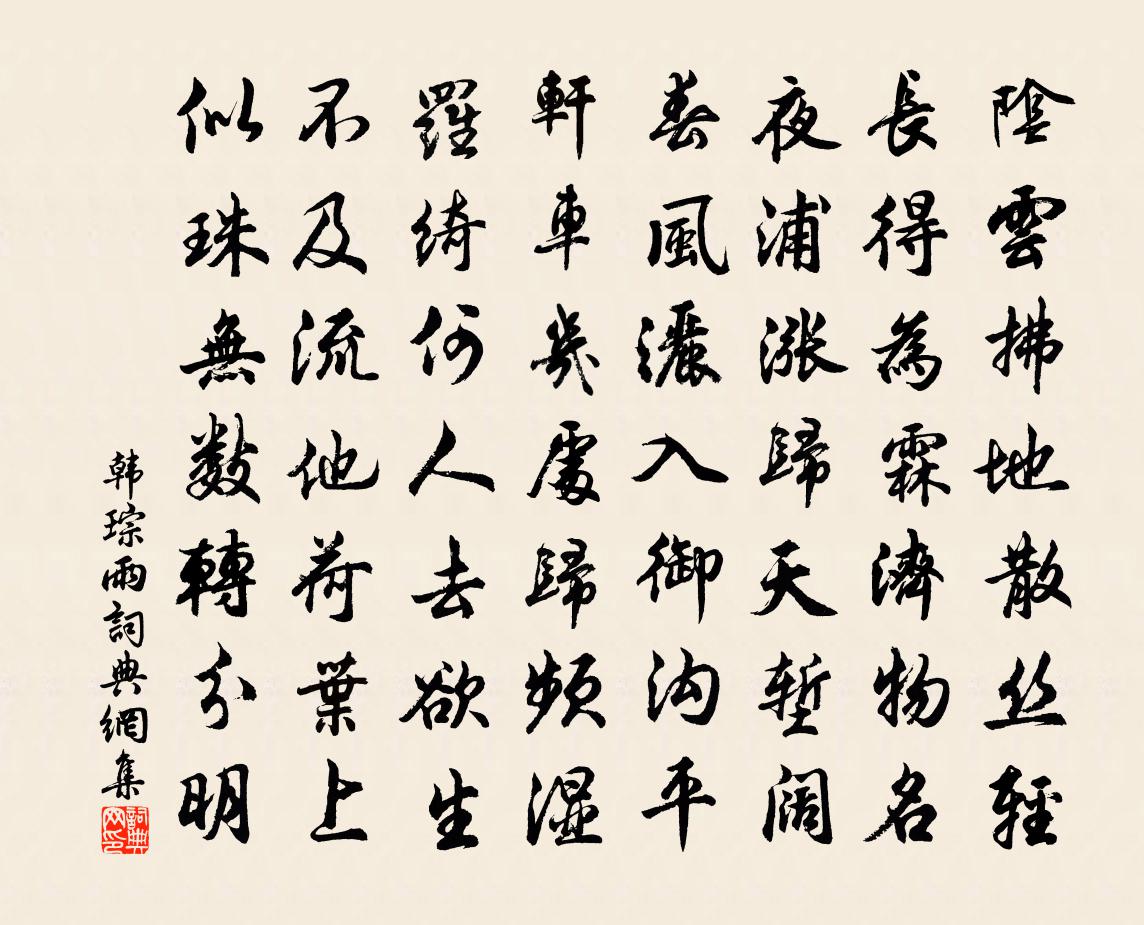 陰雲拂地散丝輕
長得為霖濟物名
夜浦漲歸天塹阔
春風灑入御沟平
軒車幾處歸頻濕
羅綺何人去欲生
不及流他荷葉上
似珠無數轉分明
韩琮雨詞典網集
詞典网印